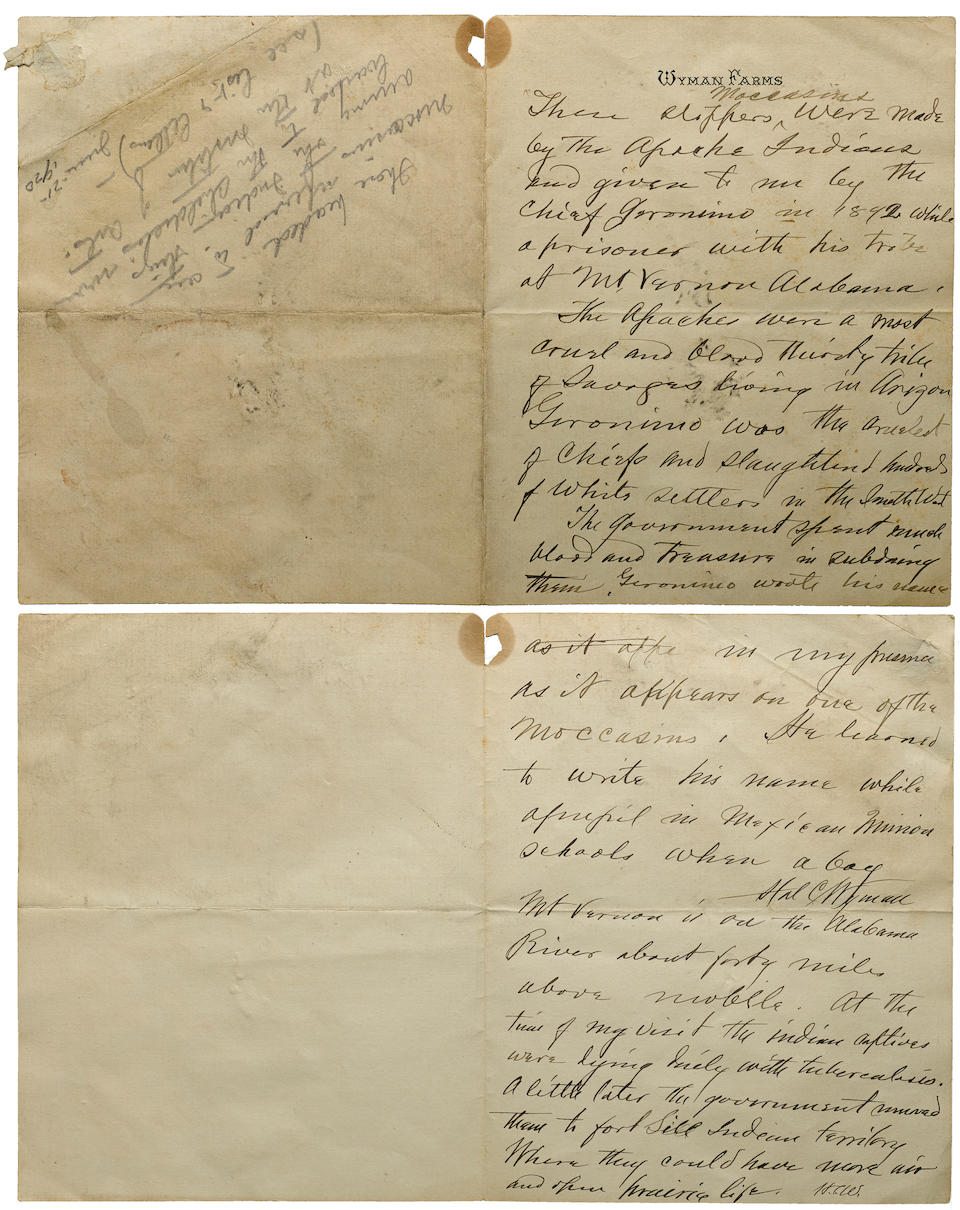 (see list & letters) June - 21 - 1920
moccasins
beaded
WYMAN FARMS
These slippers, moccasins were made
by the Apache Indians
and given to me by the
Chief Geronimo in 1892 while
a prisoner with his tribe
at Mt, Vernon Alabama.
The Apaches were a most
cruel and blood thirsty tribe
of Savages living in Arizon
Geronimo was the cruelest
of Chiefs and slaughterd hundreds
of White settlers in the South West
The government spent much
blood and treasure in subduing
them. Geronimo wrote his name
as it appe in my presence
as it appears on one of the
moccasins. He learned
to write his name while
a pupil in Mexican Mission
schools when a boy
Hal C Wyman
Mt Vernon is on the Alabama
River about forty miles
above mobile. At the
time of my visit the indian captives
were dying daily with tuberculosis.
A little later the government moved
them to fort Sill Indian territory
Where they could have more air
and open prairie life. H.C.W.